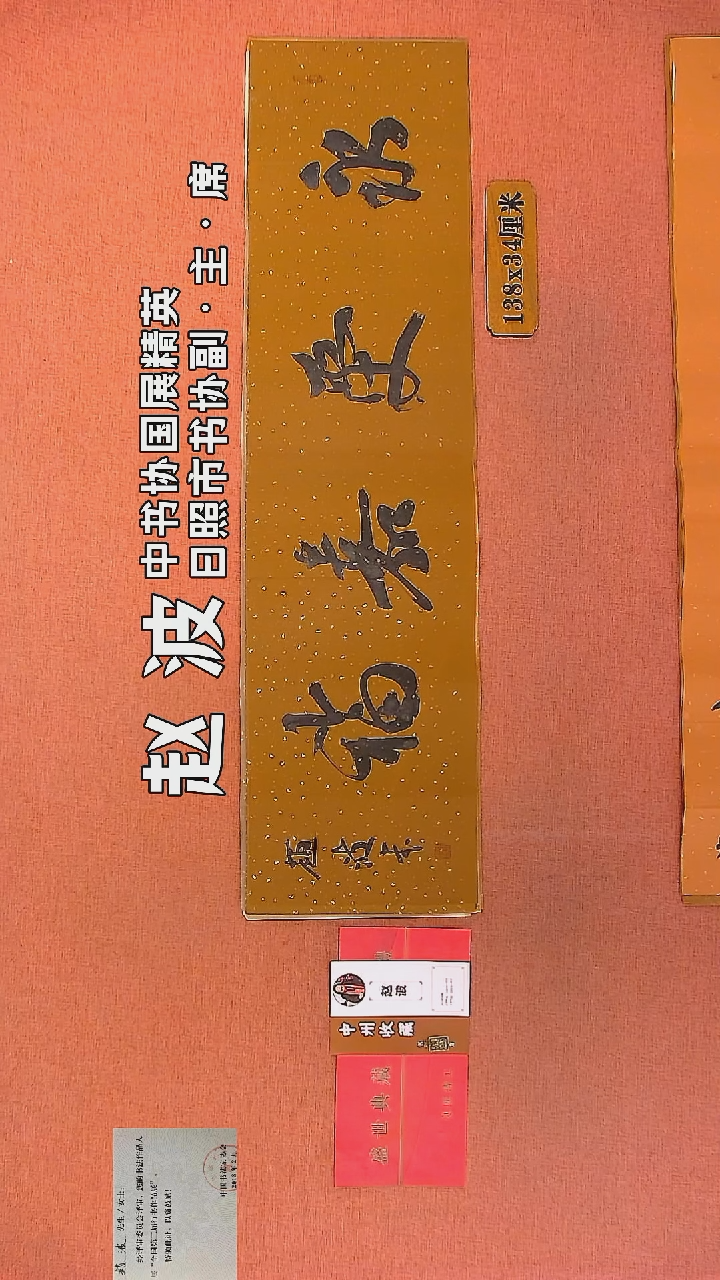 赵波
中书协国展精英
日照市书协副·主·席
永受嘉福
138x34厘米
赵波
中州收藏
盛世典藏
先生/女士: